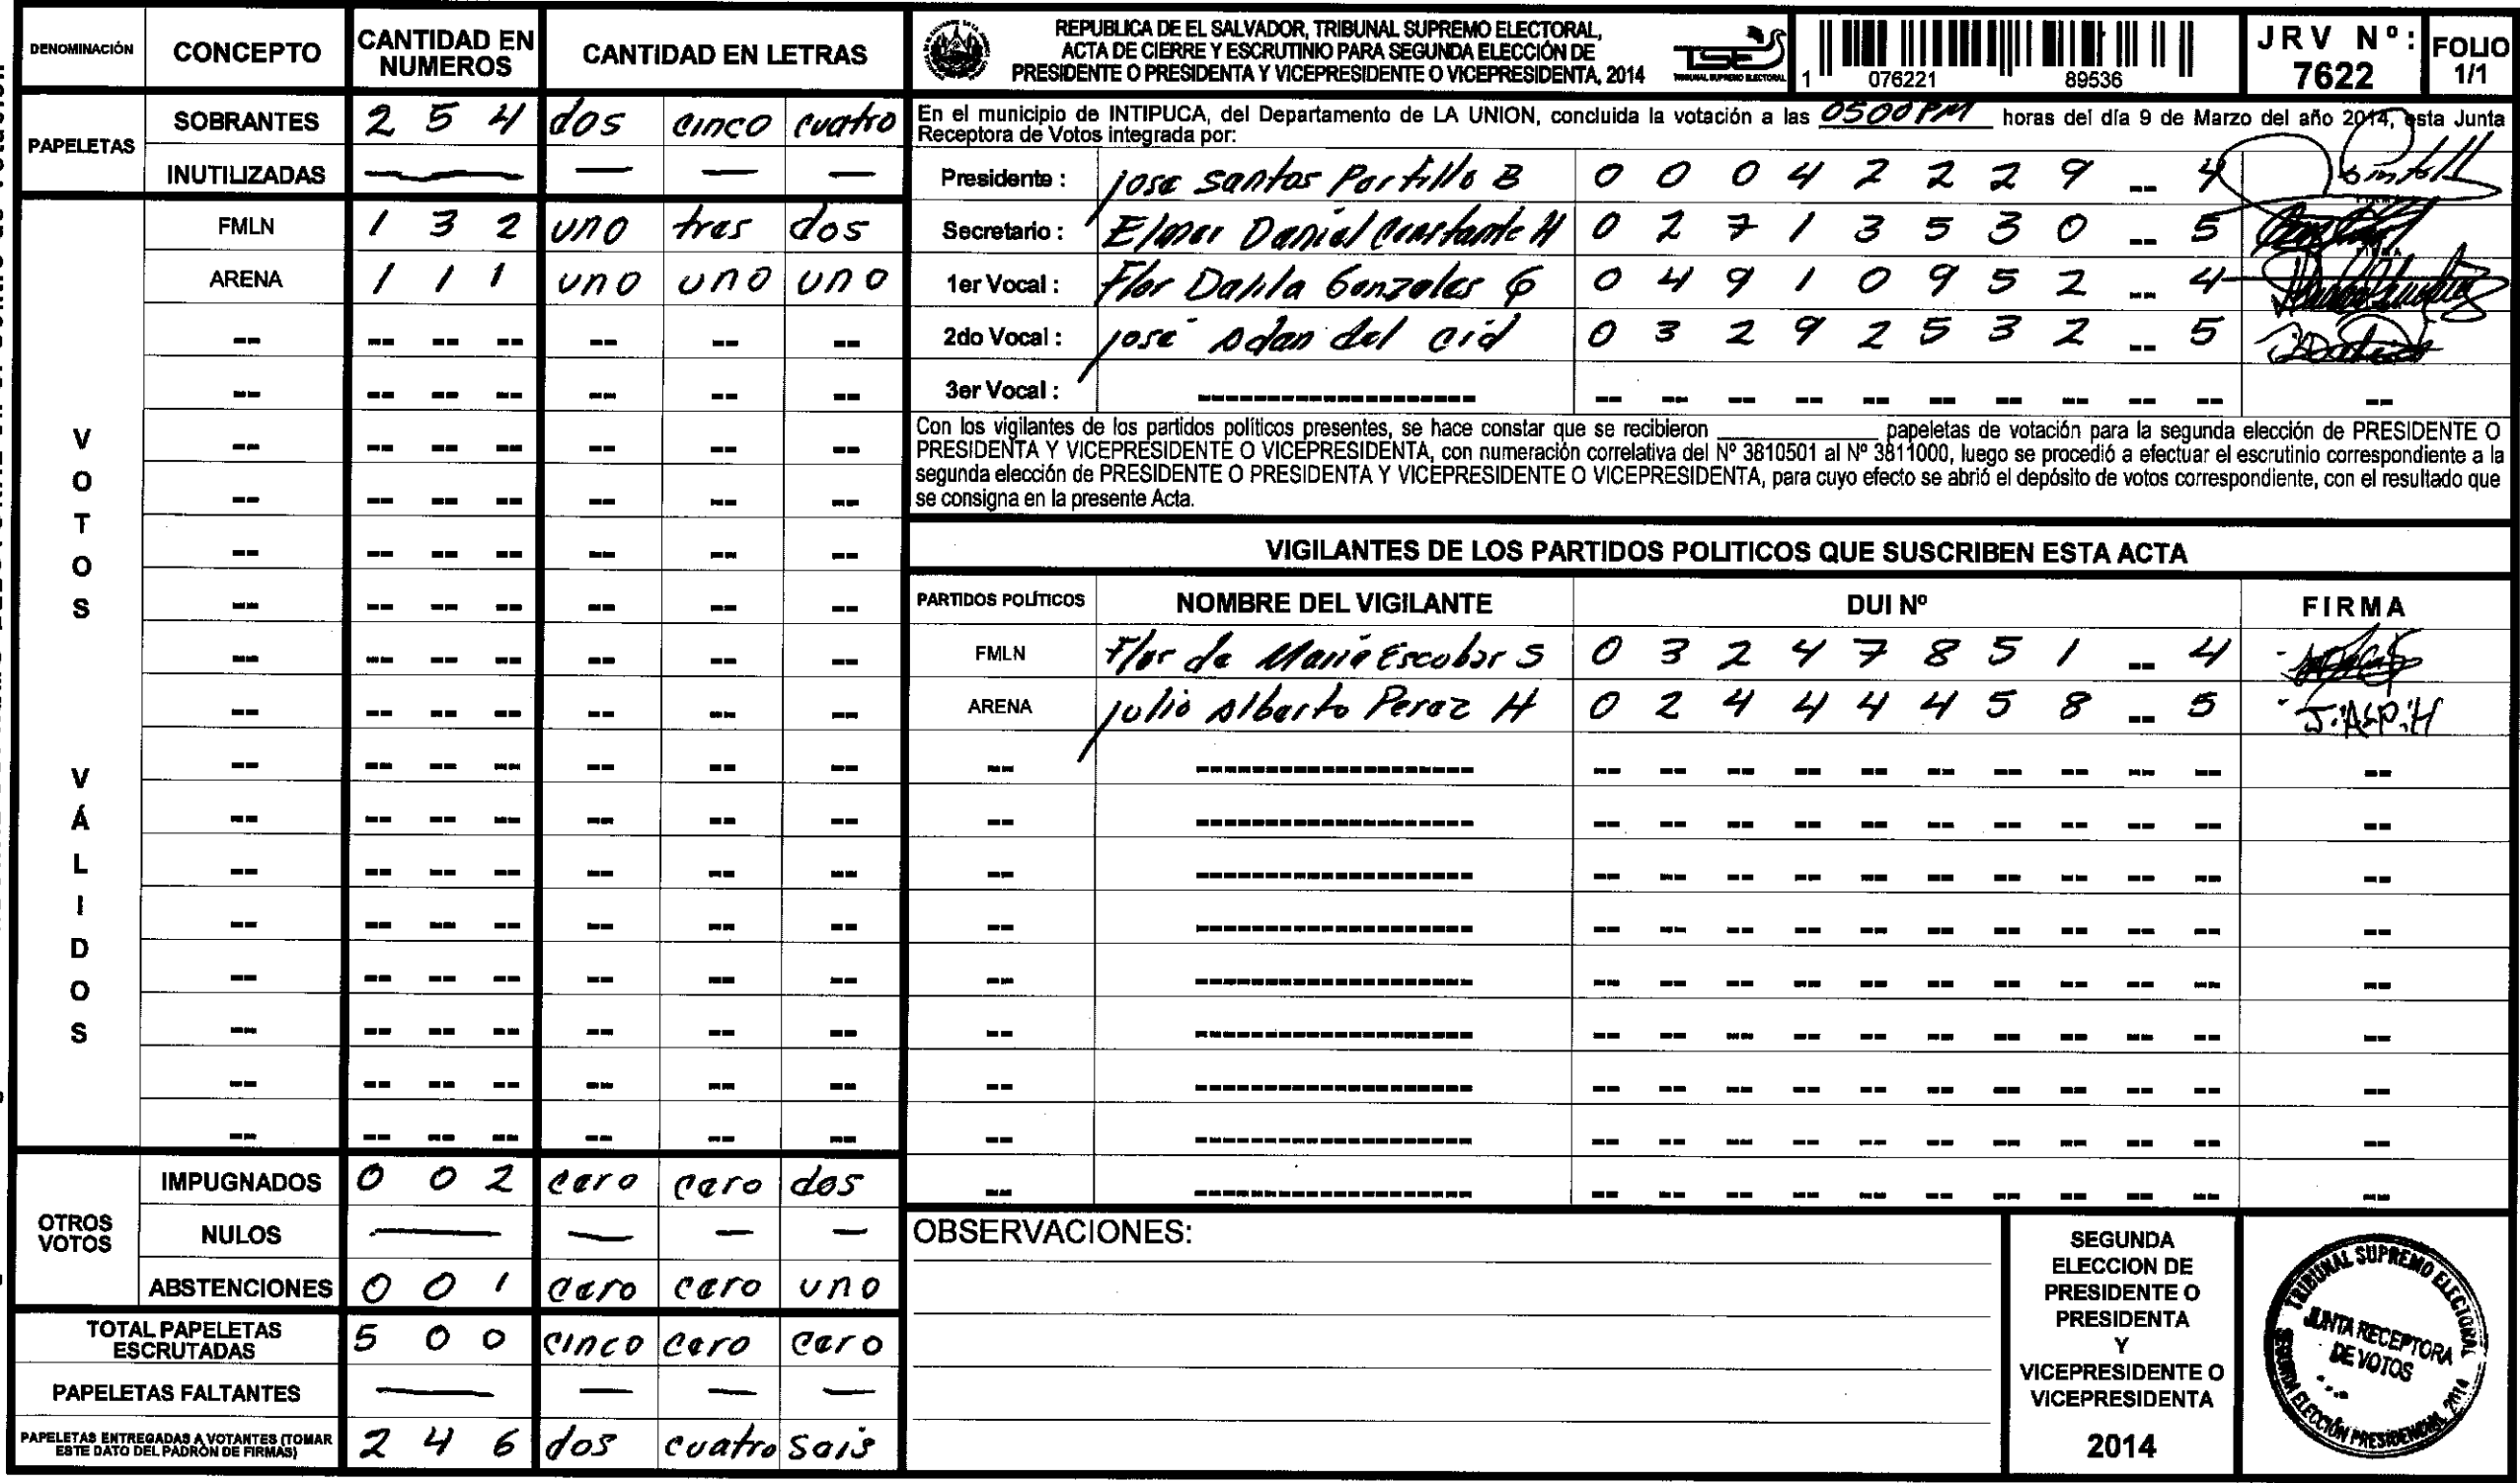 DENOMINACIÓN CONCEPTO CANTIDAD EN NUMEROS CANTIDAD EN LETRAS
PAPELETAS
SOBRANTES 2 5 4 dos cinco cuatro
INUTILIZADAS — — — —
VOTOS VÁLIDOS
FMLN 1 3 2 uno tres dos
ARENA 1 1 1 uno uno uno
OTROS VOTOS
IMPUGNADOS 0 0 2 cero cero dos
NULOS — — — —
ABSTENCIONES 0 0 1 cero cero uno
TOTAL PAPELETAS ESCRUTADAS 5 0 0 cinco cero cero
PAPELETAS FALTANTES — — — —
PAPELETAS ENTREGADAS A VOTANTES (TOMAR ESTE DATO DEL PADRÓN DE FIRMAS) 2 4 6 dos cuatro seis
REPUBLICA DE EL SALVADOR, TRIBUNAL SUPREMO ELECTORAL,
ACTA DE CIERRE Y ESCRUTINIO PARA SEGUNDA ELECCIÓN DE
PRESIDENTE O PRESIDENTA Y VICEPRESIDENTE O VICEPRESIDENTA, 2014
TSE
TRIBUNAL SUPREMO ELECTORAL
1 076221 89536
JRV Nº: 7622
FOLIO 1/1
En el municipio de INTIPUCA, del Departamento de LA UNION, concluida la votación a las 0500 PM horas del día 9 de Marzo del año 2014, esta Junta
Receptora de Votos integrada por:
Presidente : jose santos Portillo B 0 0 0 4 2 2 2 9 -- 4
Secretario : Elmer Daniel Constante H 0 2 7 1 3 5 3 0 -- 5
1er Vocal : Flor Dalila Gonzales G 0 4 9 1 0 9 5 2 -- 4
2do Vocal : josé Adan del Cid 0 3 2 9 2 5 3 2 -- 5
3er Vocal :
Con los vigilantes de los partidos políticos presentes, se hace constar que se recibieron ____ papeletas de votación para la segunda elección de PRESIDENTE O
PRESIDENTA Y VICEPRESIDENTE O VICEPRESIDENTA, con numeración correlativa del Nº 3810501 al Nº 3811000, luego se procedió a efectuar el escrutinio correspondiente a la
segunda elección de PRESIDENTE O PRESIDENTA Y VICEPRESIDENTE O VICEPRESIDENTA, para cuyo efecto se abrió el depósito de votos correspondiente, con el resultado que
se consigna en la presente Acta.
VIGILANTES DE LOS PARTIDOS POLITICOS QUE SUSCRIBEN ESTA ACTA
PARTIDOS POLÍTICOS NOMBRE DEL VIGILANTE DUI Nº FIRMA
FMLN Flor de Maria Escobar S 0 3 2 4 7 8 5 1 -- 4
ARENA julio Alberto Perez H 0 2 4 4 4 4 5 8 -- 5 J.A.P.H
OBSERVACIONES:
SEGUNDA
ELECCION DE
PRESIDENTE O
PRESIDENTA
Y
VICEPRESIDENTE O
VICEPRESIDENTA
2014
TRIBUNAL SUPREMO ELECTORAL
JUNTA RECEPTORA
DE VOTOS
SEGUNDA ELECCIÓN PRESIDENCIAL 2014